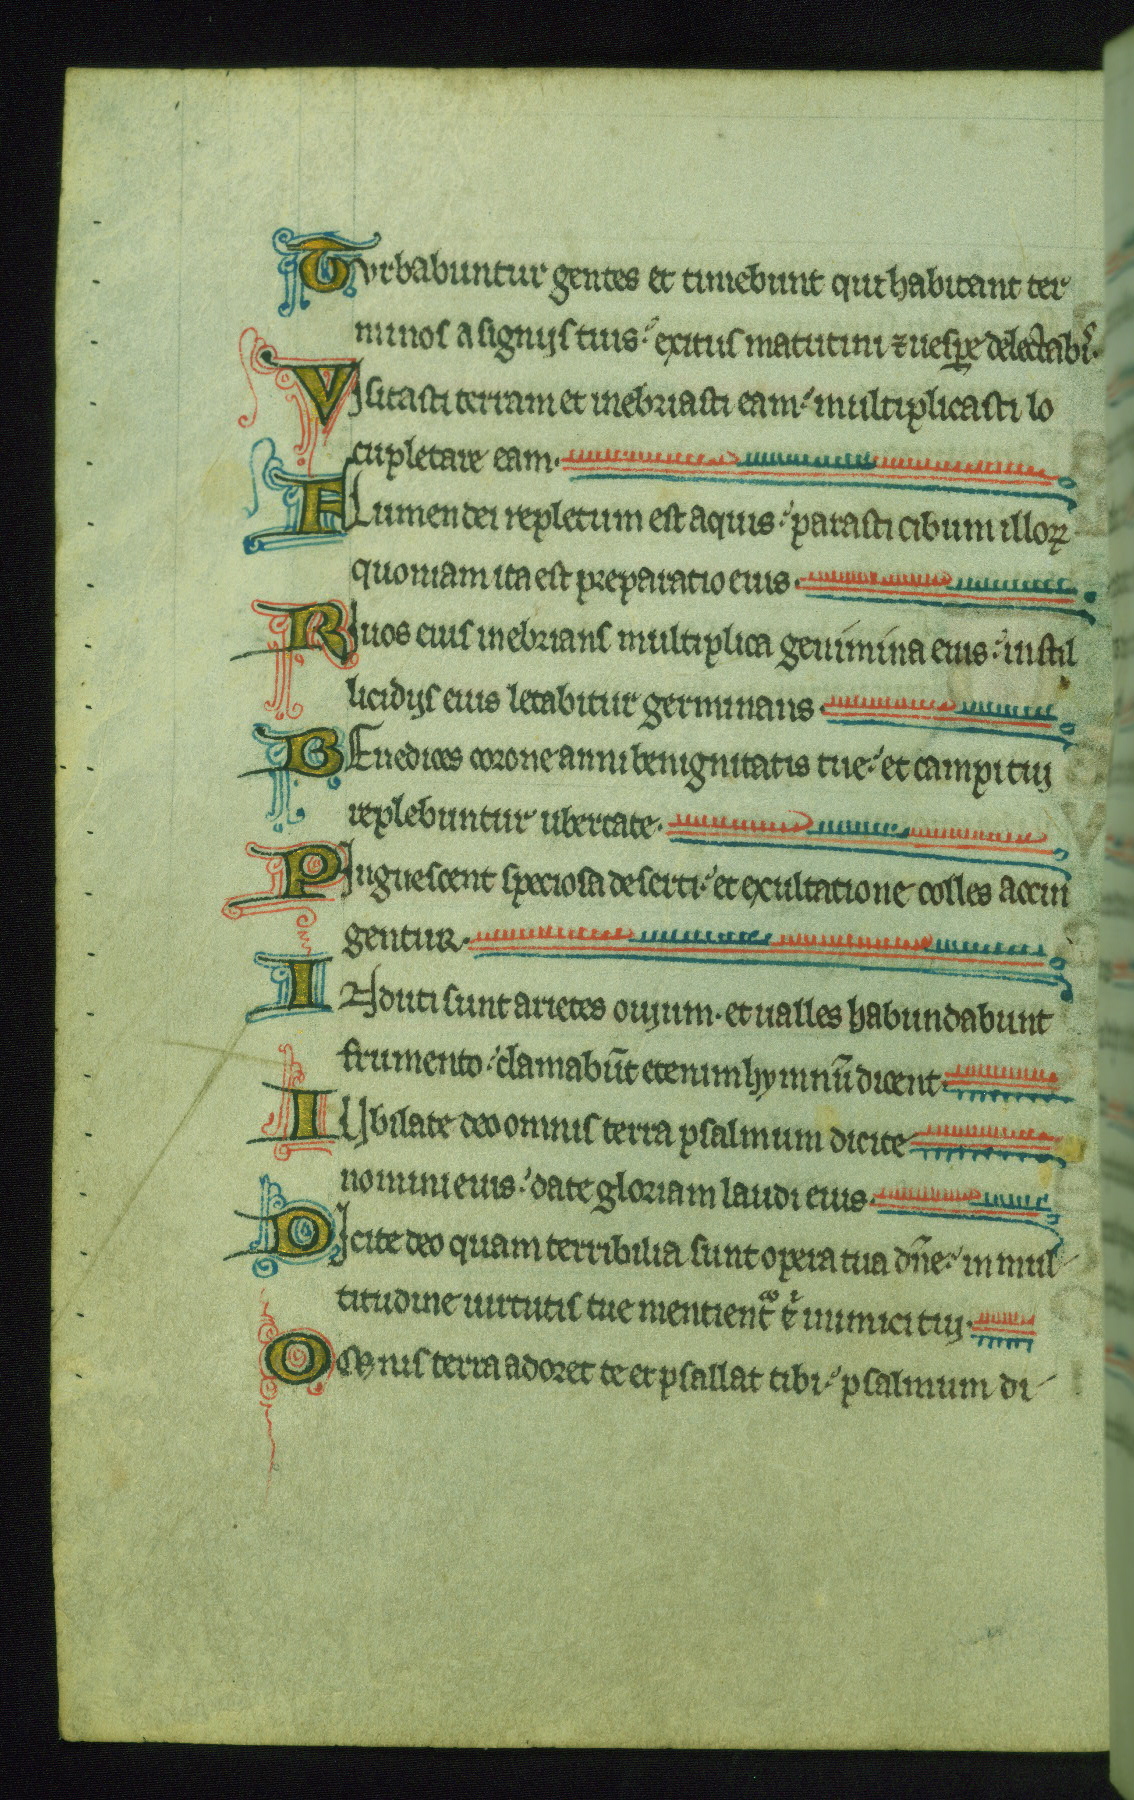 Turbabuntur gentes et timebunt qui habitant ter
minos a signijs tuis: exitus matutini ⁊ uesꝑe delectabĩs.
Visitasti terram et inebriasti eam: multiplicasti lo
cupletare eam.
Flumen dei repletum est aquis: parasti cibum illoꝝ
quoniam ita est preparatio eius.
Riuos eius inebrians multiplica genimina eius: in stil
licidijs eius letabitur germinans.
Benedices corone anni benignitatis tue: et campi tui
replebuntur ubertate.
Pinguescent speciosa deserti: et exultatione colles accin
gentur.
Induti sunt arietes ouium. et ualles habundabunt
frumento: clamabũt etenim hymnũ dicent.
Iubilate deo omnis terra psalmum dicite
nomini eius: date gloriam laudi eius.
Dicite deo quam terribilia sunt opera tua dñe: in mul
titudine uirtutis tue mentient᷑ t̾ inimici tui.
Omnis terra adoret te et psallat tibi: psalmum di